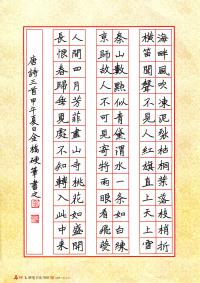 海畔風吹凍泥裂枯桐葉落枝梢折
橫笛聞聲不見人紅旗直上天山雪
秦山數點似青黛渭水一條如白練
京師故人不可見寄將兩眼看飛燕
人間四月芳菲盡山寺桃花始盛開
長恨春歸無覓處不知轉入此中來
唐詩三首甲午夏日金橋硬筆書之